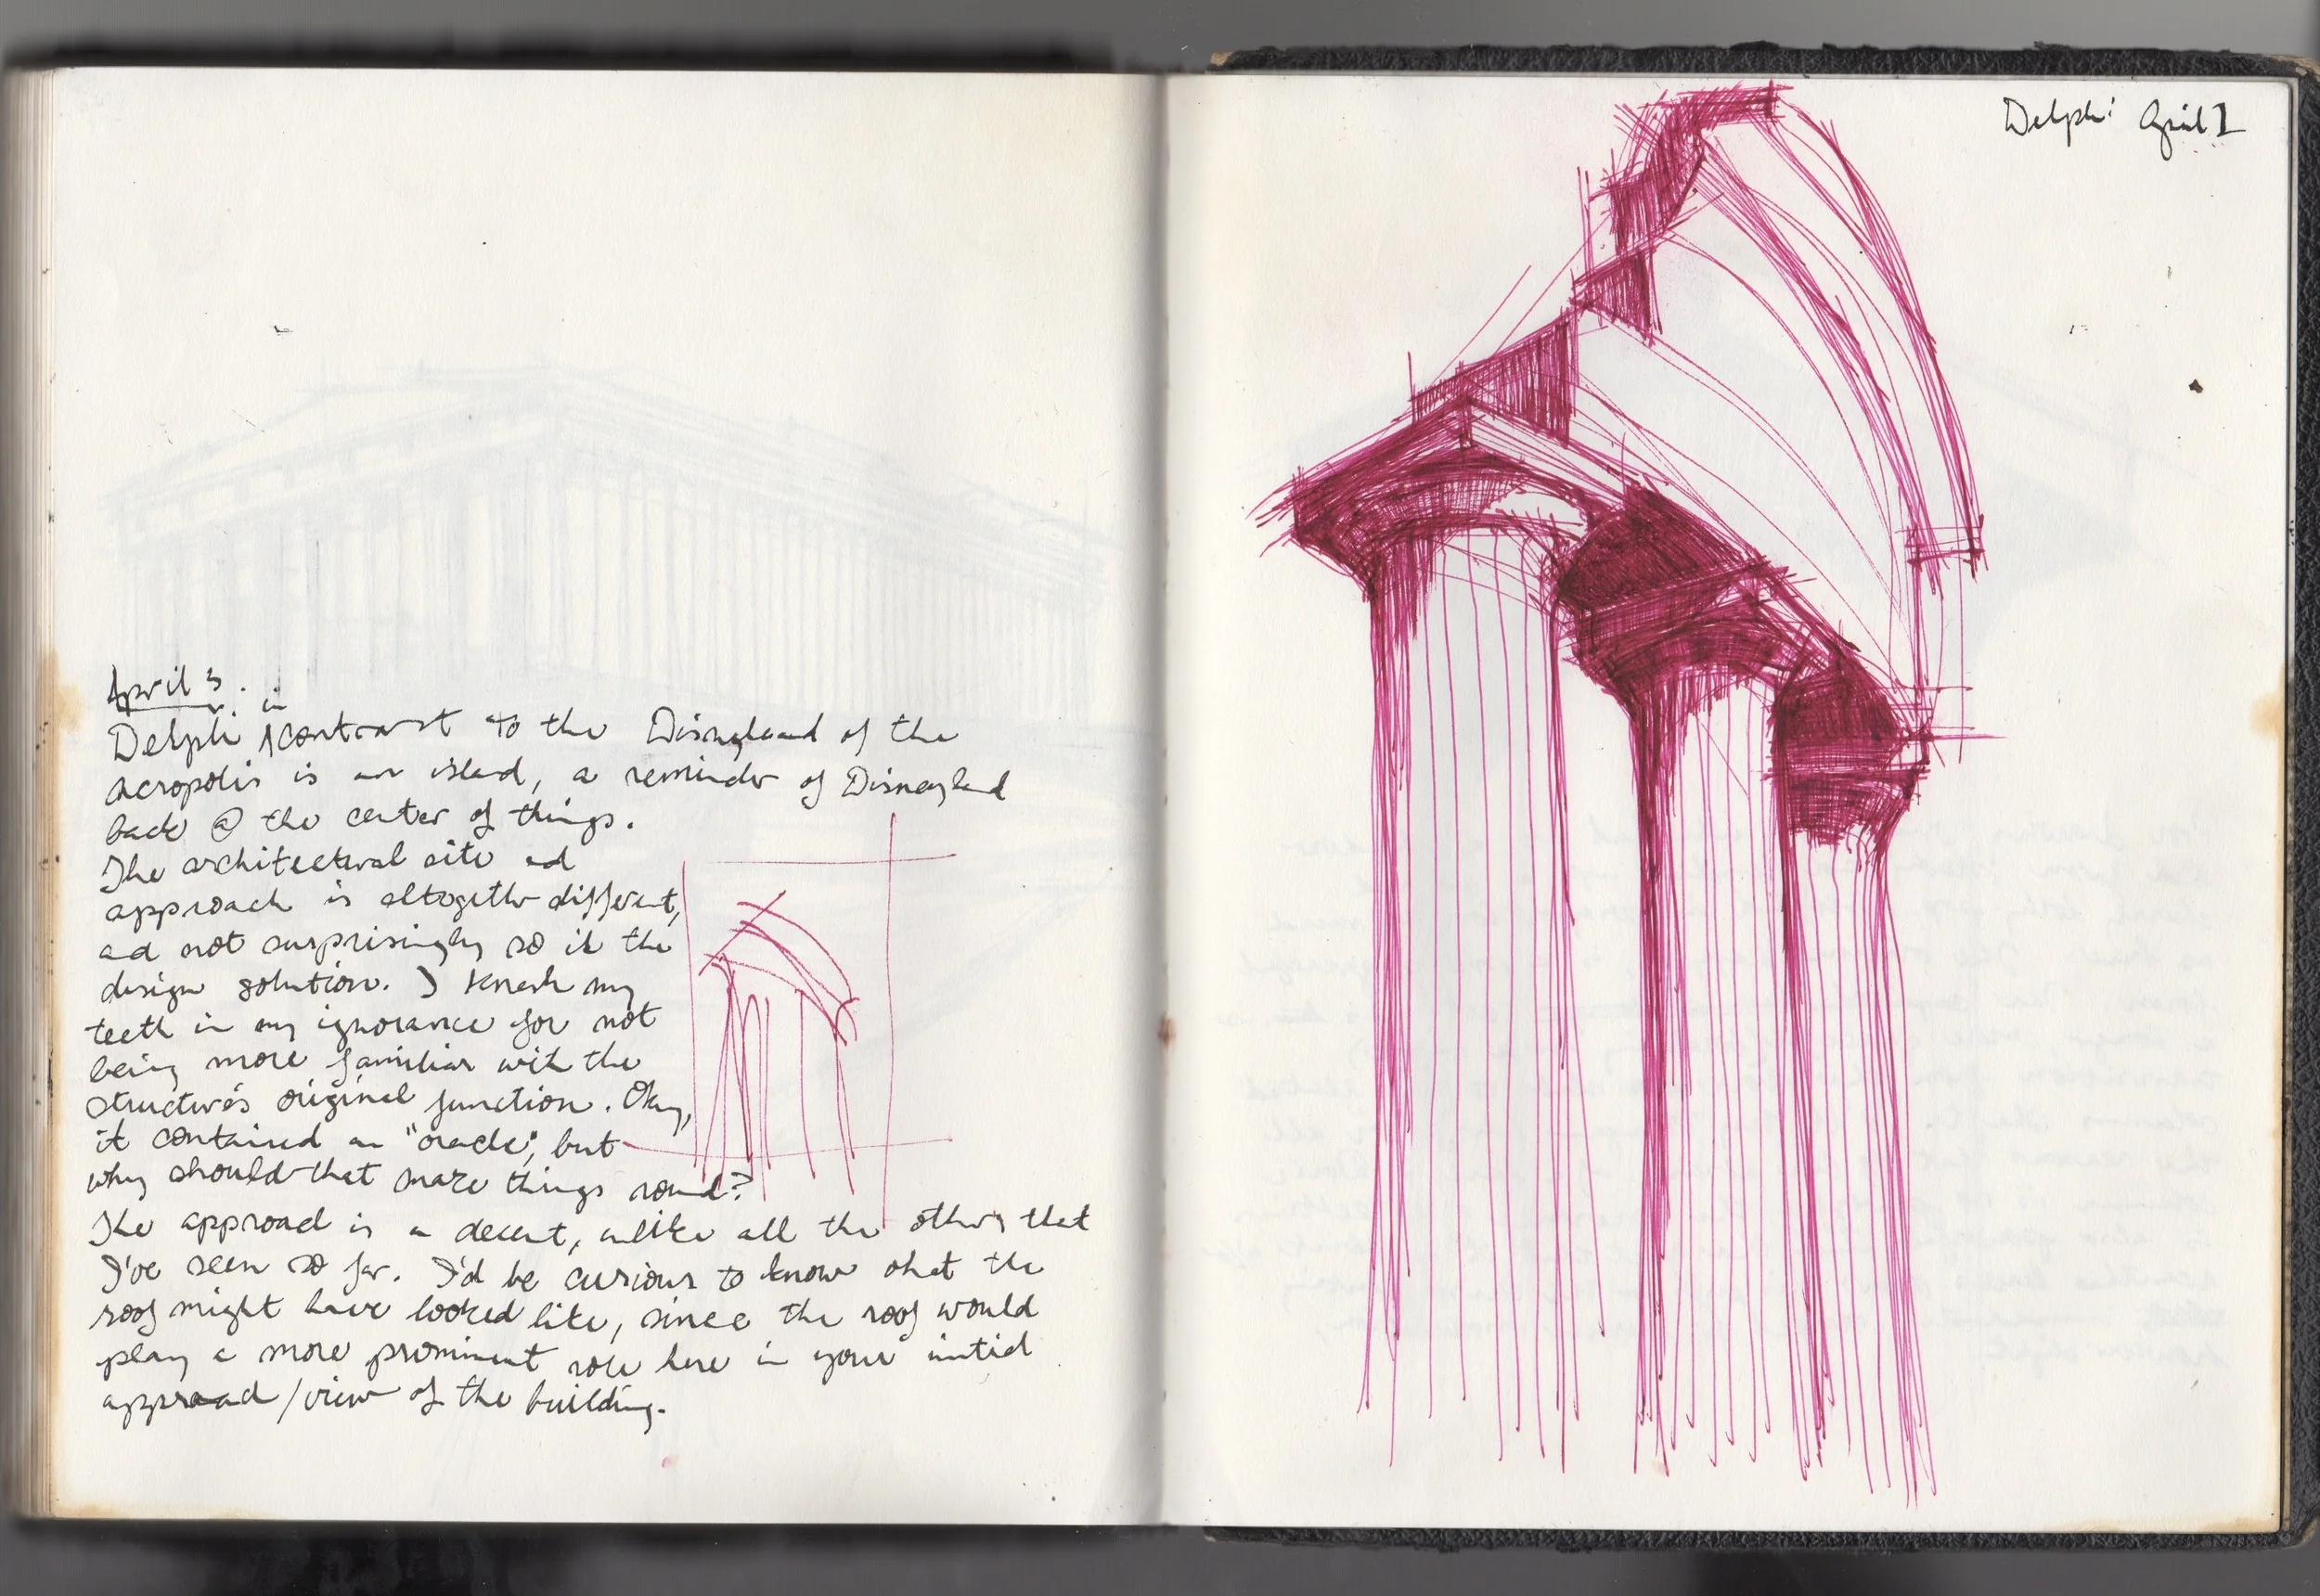 April 3.
Delphi in contrast to the Disneyland of the
Acropolis is an island, a reminder of Disneyland
back @ the center of things.
The architectural site and
approach is altogether different,
and not surprisingly so is the
design solution. I knash my
teeth in my ignorance for not
being more familiar with the
structure's original function. Okay,
it contained an "oracle", but
why should that make things round?
The approach is a decent, unlike all the others that
I've seen so far. I'd be curious to know what the
roof might have looked like, since the roof would
play a more prominent role here in your initial
approach/view of the building.
Delphi April